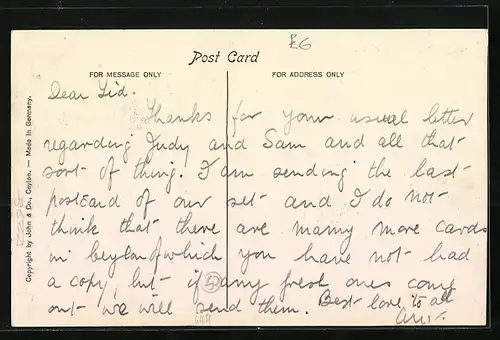 £6
Post Card
FOR MESSAGE ONLY
FOR ADDRESS ONLY
Copyright by John & Co., Ceylon. — Made in Germany.
Dear Sid.
Thanks for your usual letter
regarding Judy and Sam and all that
sort of thing. I am sending the last
postcard of our set and I do not
think that there are many more cards
in Ceylon of which you have not had
a copy, but if any fresh ones come
out we will send them. Best love to all